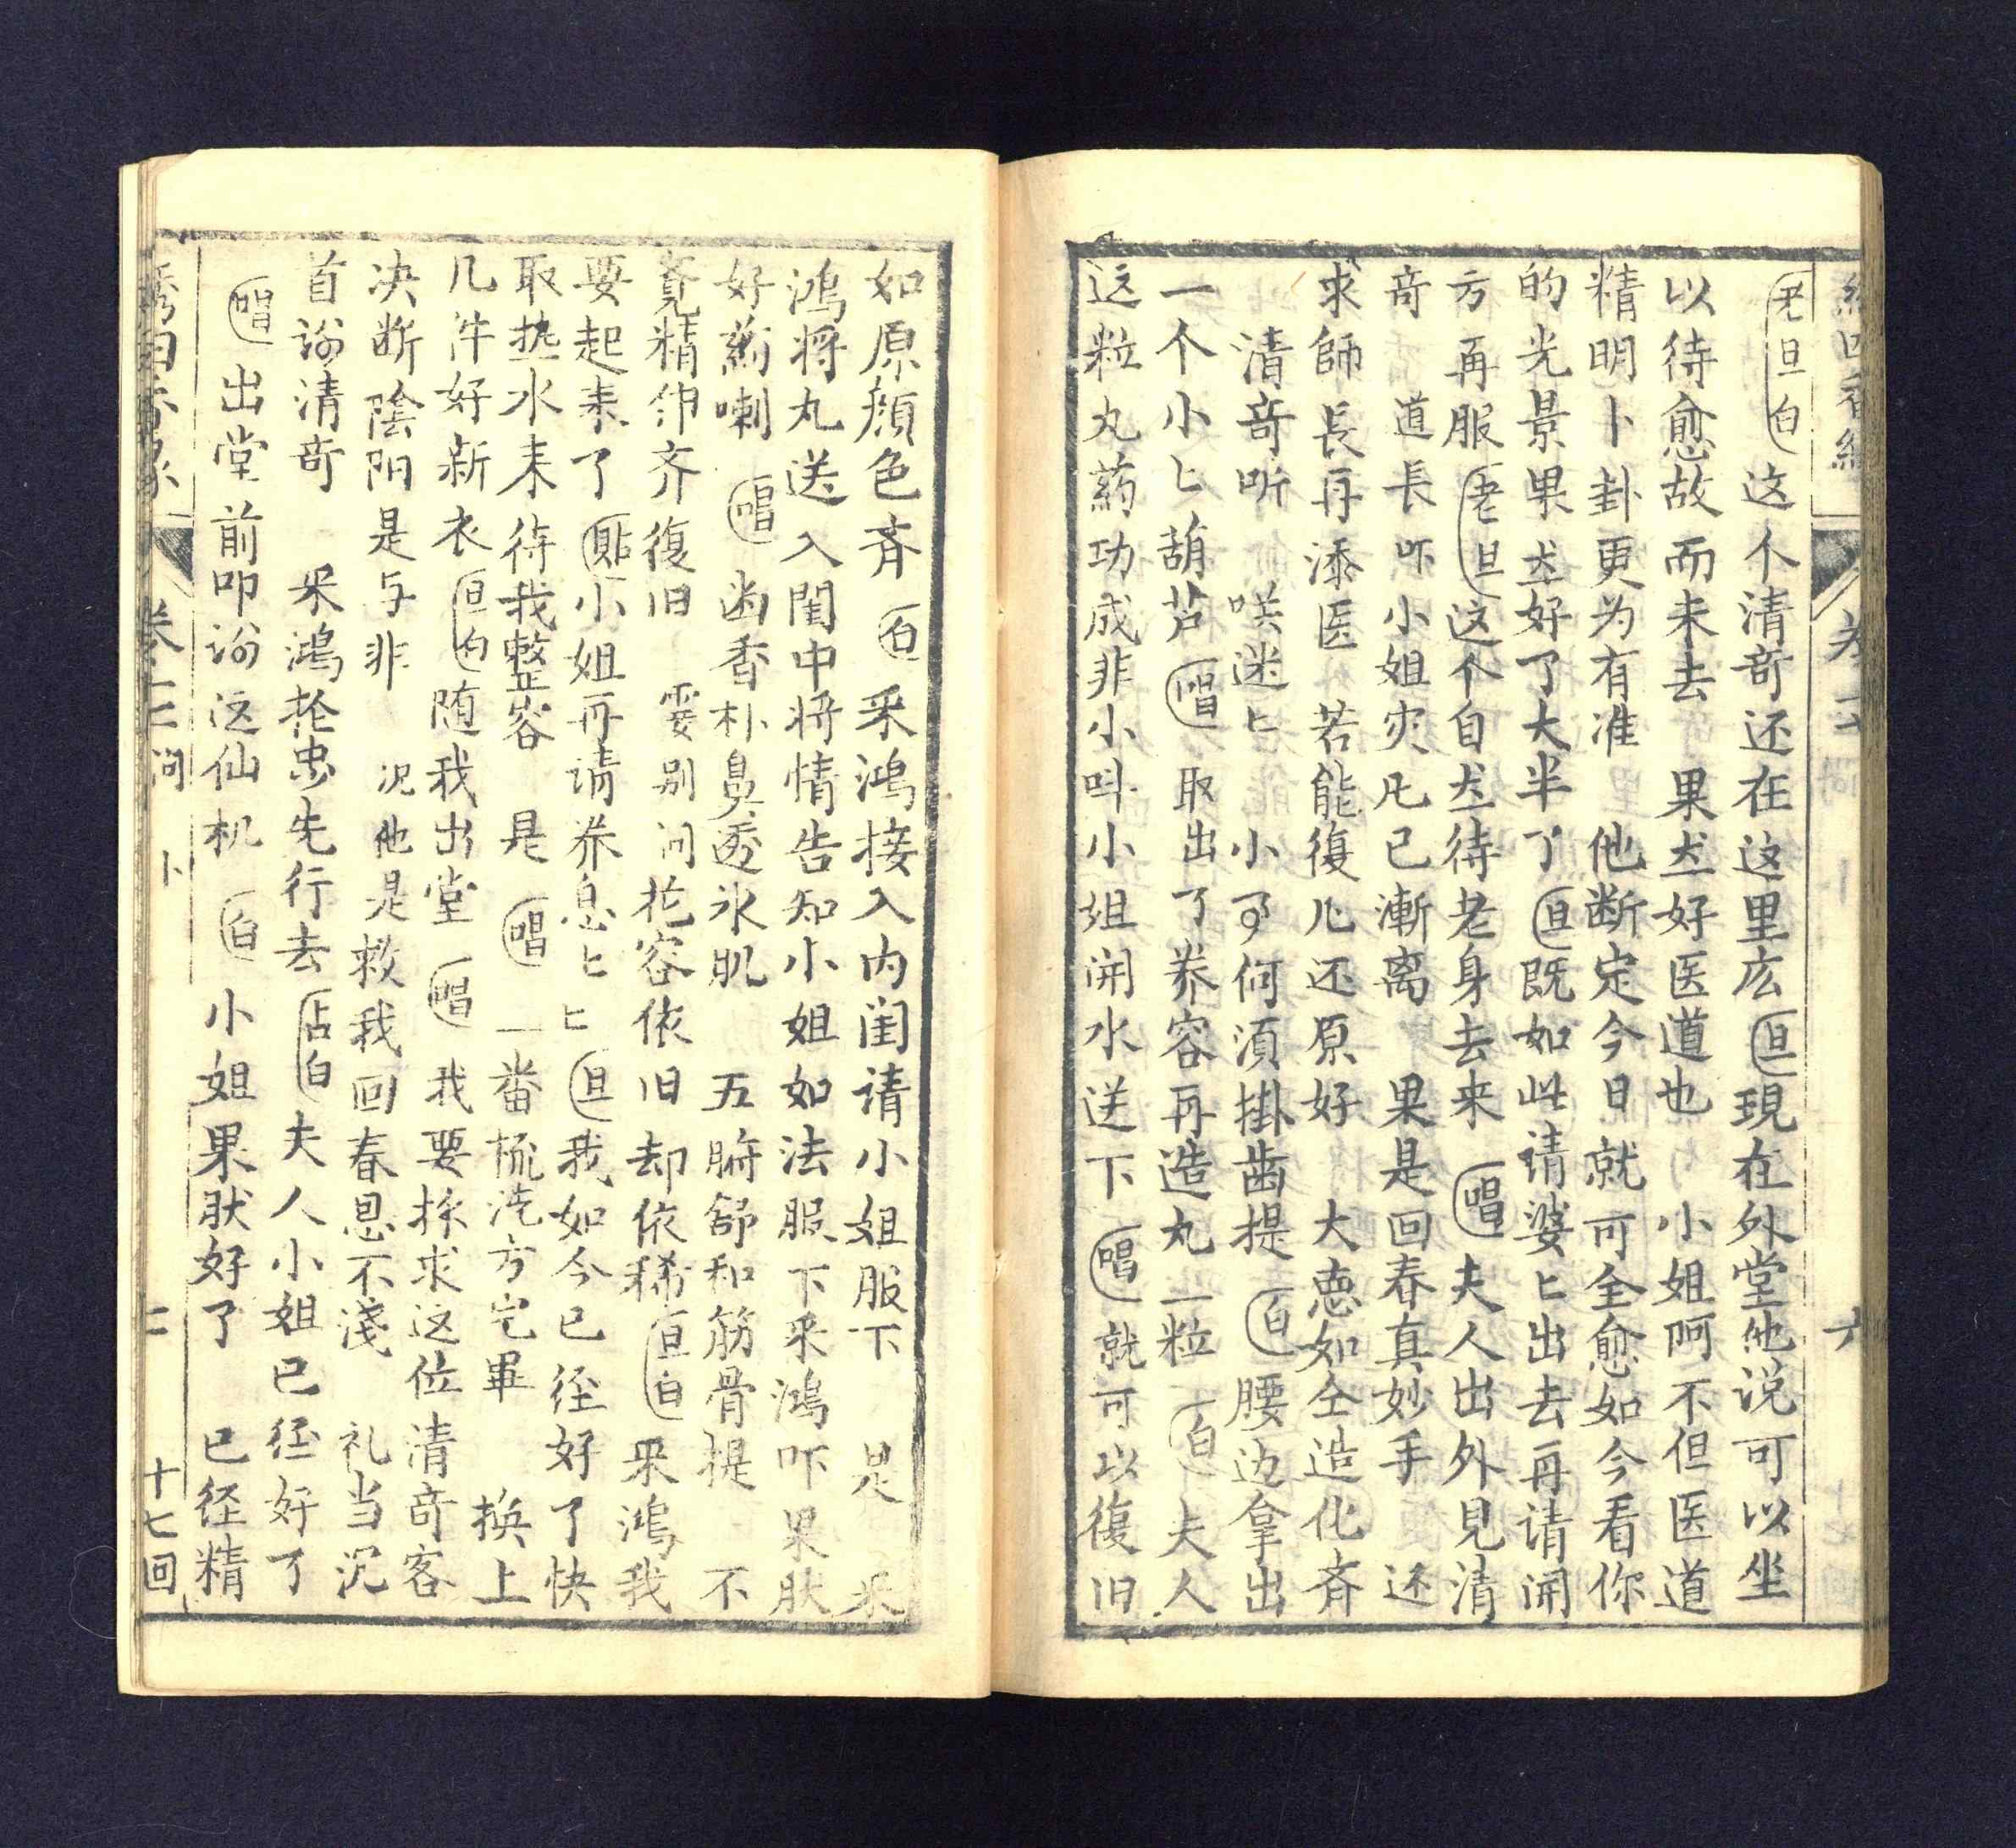 老旦白 这个清奇还在这里庅 旦 現在外堂他说可以坐
以待愈故而未去 果然好医道也 小姐阿不但医道
精明卜卦更为有准 他断定今日就可全愈如今看你
的光景果然好了大半了 旦 既如此请婆匕出去再请開
方再服 老旦 这个自然待老身去来 唱 夫人出外見清
奇 道長吓小姐灾厄已漸离 果是回春真妙手 还
求師長再添医 若能復儿还原好 大恵如仝造化齐
清奇听 咲迷匕 小可何湏掛齒提 白 腰边拿出
一个小匕葫芦 唱 取出了养容再造丸一粒 白 夫人
这粒丸葯功成非小呌小姐開水送下 唱 就可以復旧
如原顔色斉 白 采鴻接入内闺请小姐服下 是 采
鴻将丸送入閨中将情告知小姐如法服下采鴻吓果肰
好葯喇 唱 齒香朴鼻透氷肌 五腑舒和筋骨提 不
覓精神齐復旧 要别问 花容依旧却依稀 旦白 采鴻我
要起来了 貼 小姐再请养息匕匕 旦 我如今已径好了快
取热水来待我整容 是 唱 一畨梳洗方完畢 换上
几件好新衣 旦白 随我出堂 唱 我要拜求这位清奇客
决断陰阳是与非 况他是救我回春恩不淺 礼当沉
首谢清奇 采鴻抡忠先行去 占白 夫人小姐已径好了
唱 出堂前叩谢这仙机 白 小姐果肰好了 已径精
卷 问 卜 十七回